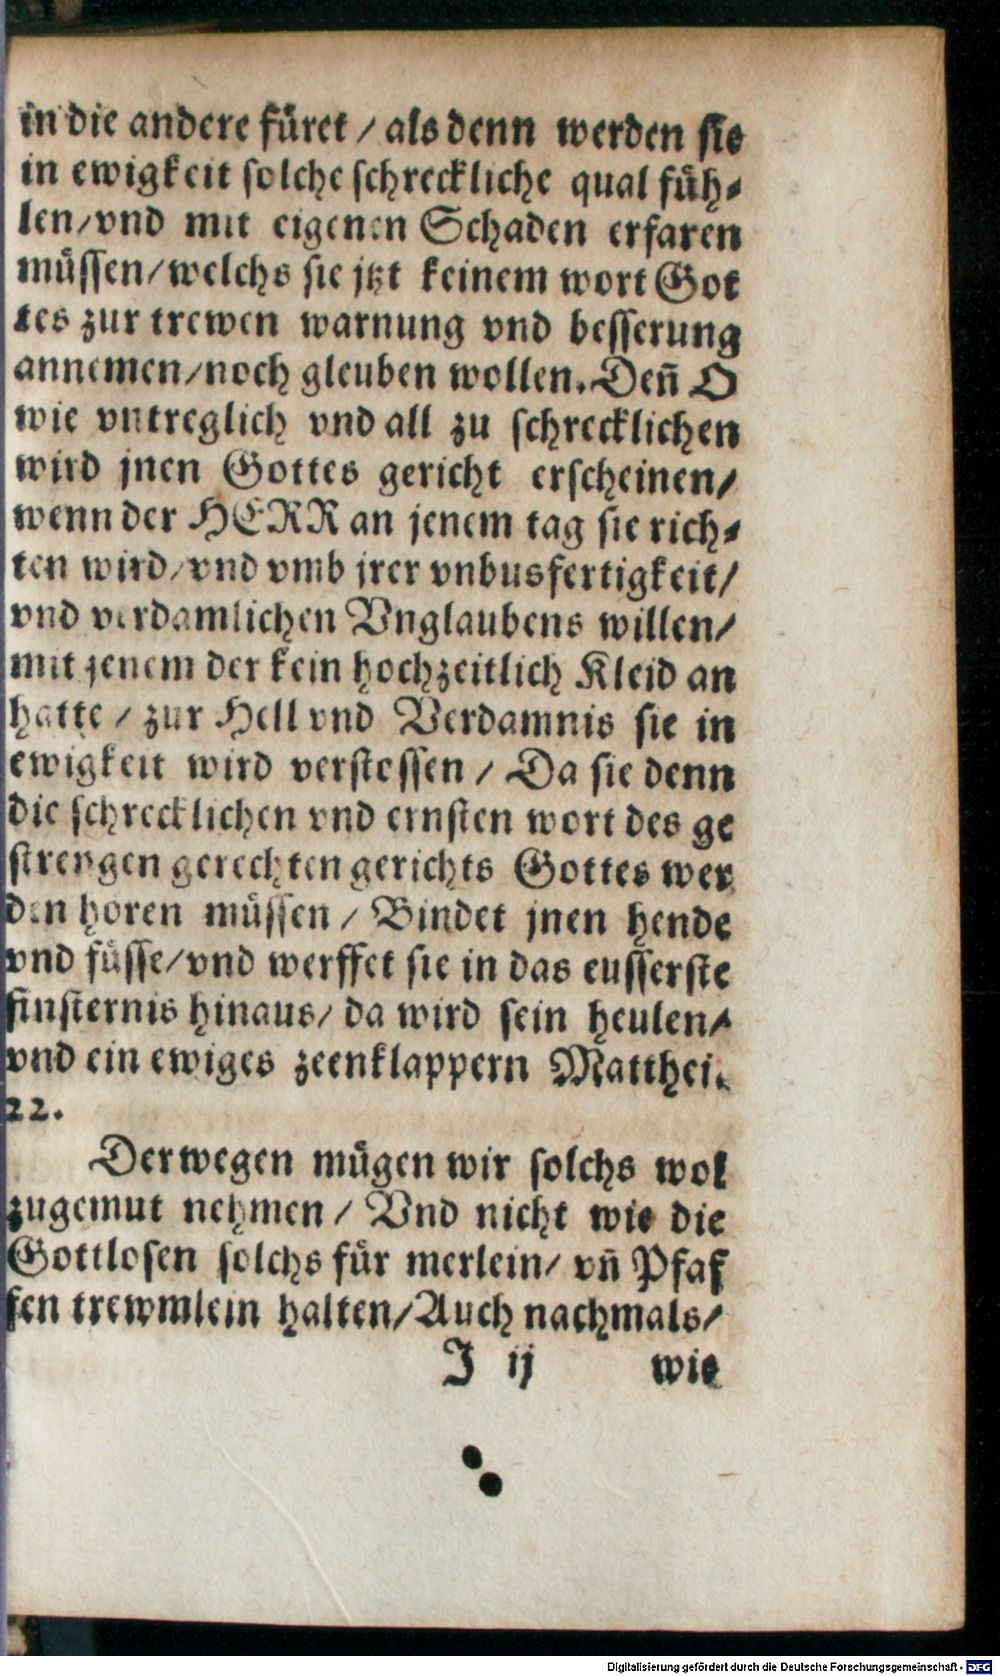 in die andere füret / als denn werden sie
in ewigkeit solche schreckliche qual füh⸗
len/vnd mit eigenen Schaden erfaren
müssen/welchs sie jtzt keinem wort Got
tes zur trewen warnung vnd besserung
annemen/noch gleuben wollen. Deñ O
wie vntreglich vnd all zu schrecklichen
wird jnen Gottes gericht erscheinen/
wenn der HERR an jenem tag sie rich⸗
ten wird/vnd vmb jrer vnbusfertigkeit/
vnd verdamlichen Vnglaubens willen/
mit jenem der kein hochzeitlich Kleid an
hatte / zur Hell vnd Verdamnis sie in
ewigkeit wird verstossen / Da sie denn
die schrecklichen vnd ernsten wort des ge
strengen gerechten gerichts Gottes wer
den hören müssen / Bindet jnen hende
vnd füsse/vnd werffet sie in das eusserste
finsternis hinaus/ da wird sein heulen/
vnd ein ewiges zeenklappern Matthei.
22.
Derwegen mügen wir solchs wol
zugemut nehmen / Vnd nicht wie die
Gottlosen solchs für merlein/ vñ Pfaf
fen trewmlein halten/Auch nachmals/
J ij wie
Digitalisierung gefördert durch die Deutsche Forschungsgemeinschaft - DFG